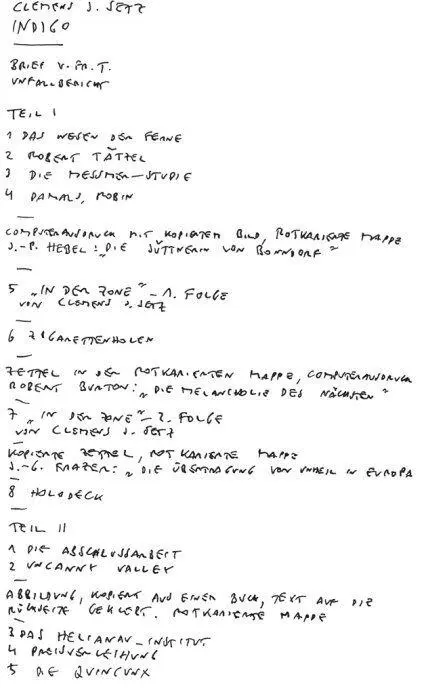 CLEMENS J. SETZ
INDIGO
BRIEF V. FR. T.
UNFALLBERICHT
TEIL I
1 DAS WESEN DER FERNE
2 ROBERT TÄTZEL
3 DIE MESSMER-STUDIE
4 DAMALS, ROBIN
COMPUTERAUSDRUCK MIT KOPIERTEM BILD, ROTKARIERTE MAPPE
J.-P. HEBEL: „DIE JÜTTNERIN VON BONNDORF"
5 „IN DER ZONE" – 1. FOLGE
VON CLEMENS J. SETZ
6 ZIGARETTENHOLEN
ZETTEL IN DER ROTKARIERTEN MAPPE, COMPUTERAUSDRUCK
ROBERT BURTON: „DIE MELANCHOLIE DES NÄCHSTEN"
7 „IN DER ZONE" – 2. FOLGE
VON CLEMENS J. SETZ
KOPIERTE ZETTEL, ROTKARIERTE MAPPE
J.-G. FRAZER: „DIE ÜBERTRAGUNG VON UNHEIL IN EUROPA
8 HOLODECK
TEIL II
1 DIE ABSCHLUSSARBEIT
2 UNCANNY VALLEY
ABBILDUNG, KOPIERT AUS EINEM BUCH, TEXT AUF DIE
RÜCKSEITE GEKLEBT. ROTKARIERTE MAPPE
3 DAS HELIANAU-INSTITUT
4 PREISVERLEIHUNG
5 DIE QUINCUNX